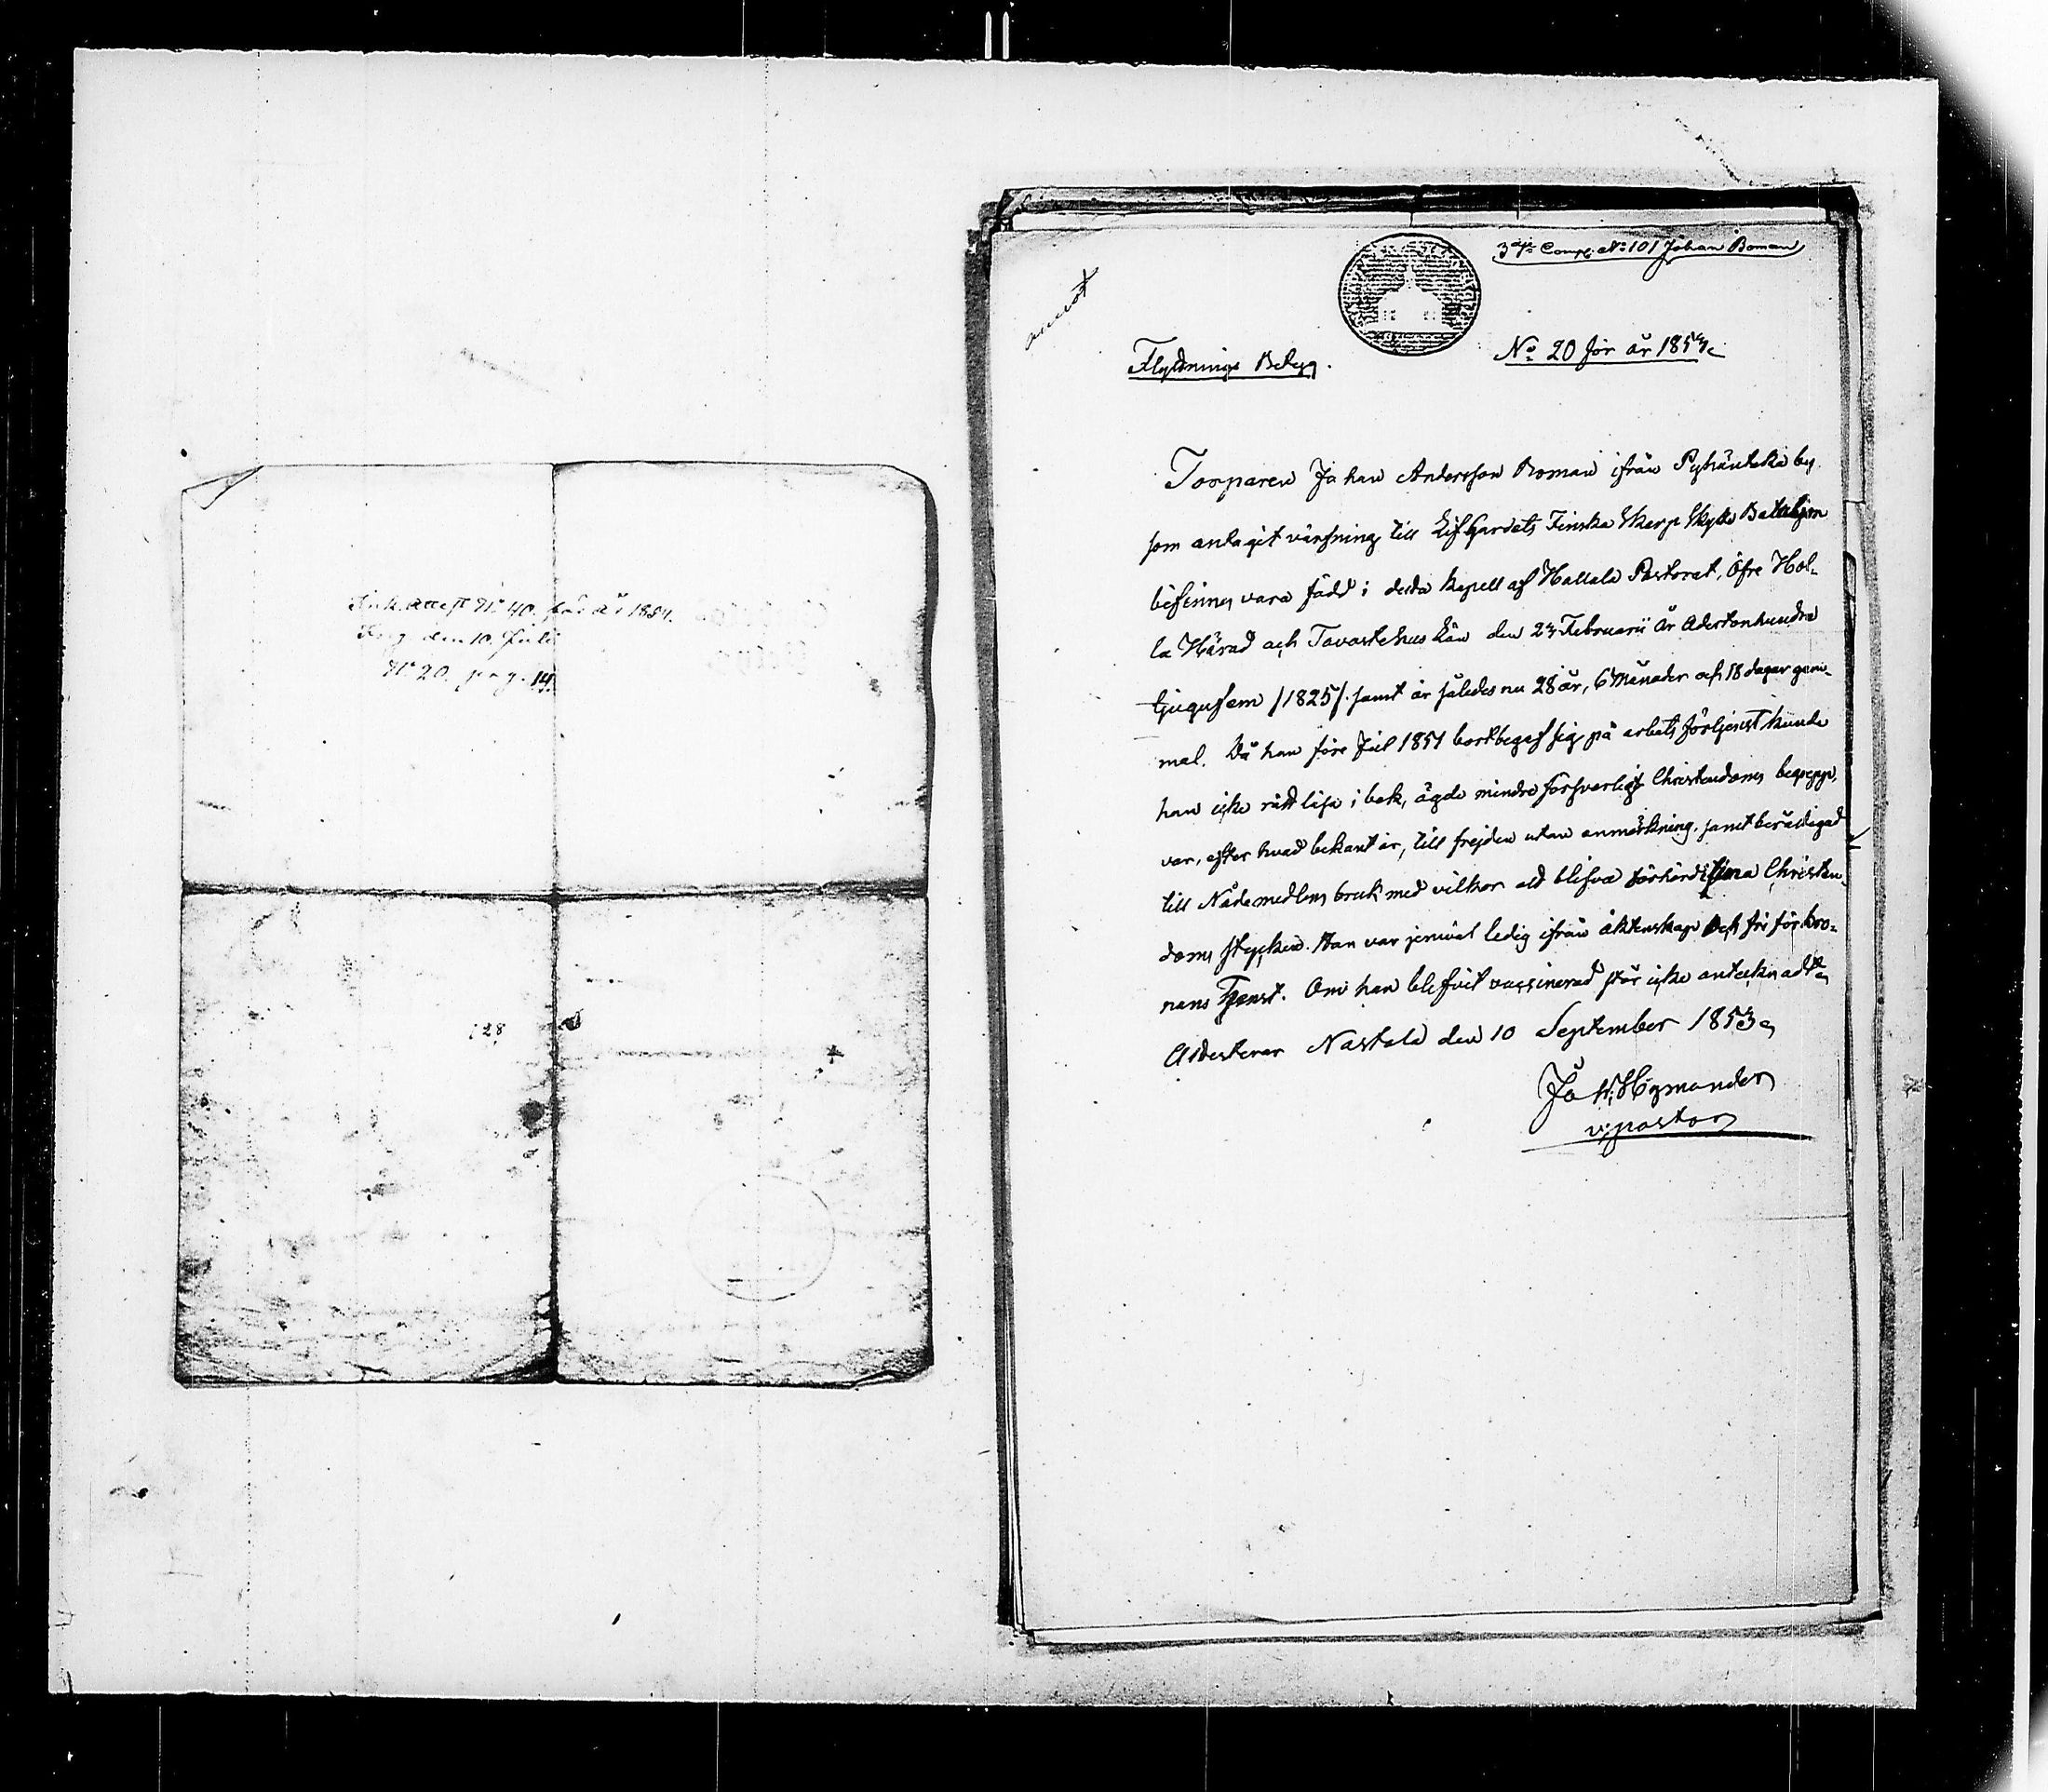 Ink. attest N:o 40. för år 1854.
Ing. den 10. Juli
N:o 20. pag. 14.
128
3dje Comp. No 101 Johan Boman
annot
Flyttnings Betyg.
No 20 för år 1853.
Torparen Johan Andersson Boman ifrån Pyhäntaka by
som antagit värfning till Lif Gardets Finska Skarp Skytte Bataljon
befinnes vara född i detta kapell af Hollola Pastorat, Öfre Hol-
la Härad och Tavastehus Län den 23 Februarii År Adertonhundra
tjugufem /1825/ samt är således nu 28 år, 6 Månader och 18 dagar gam-
mal. Då han före Jul 1851 bortbegaf sig på arbets förtjenst kunde
han icke rätt läsa i bok, ägde mindre försvarligt Christendoms begrepp,
var, efter hvad bekant är, till frejden utan anmärkning, samt berättigad
till Nådemedlens bruk med vilkor att blifva förhörd i sina Christen-
doms stycken. Han var jemväl ledig ifrån äktenskap och fri för kro-
nans Tjenst. Om han blifvit vaccinerad står icke antecknadt.
Attesterar Nastola den 10 September 1853.
Joh. Högmander
v. pastor